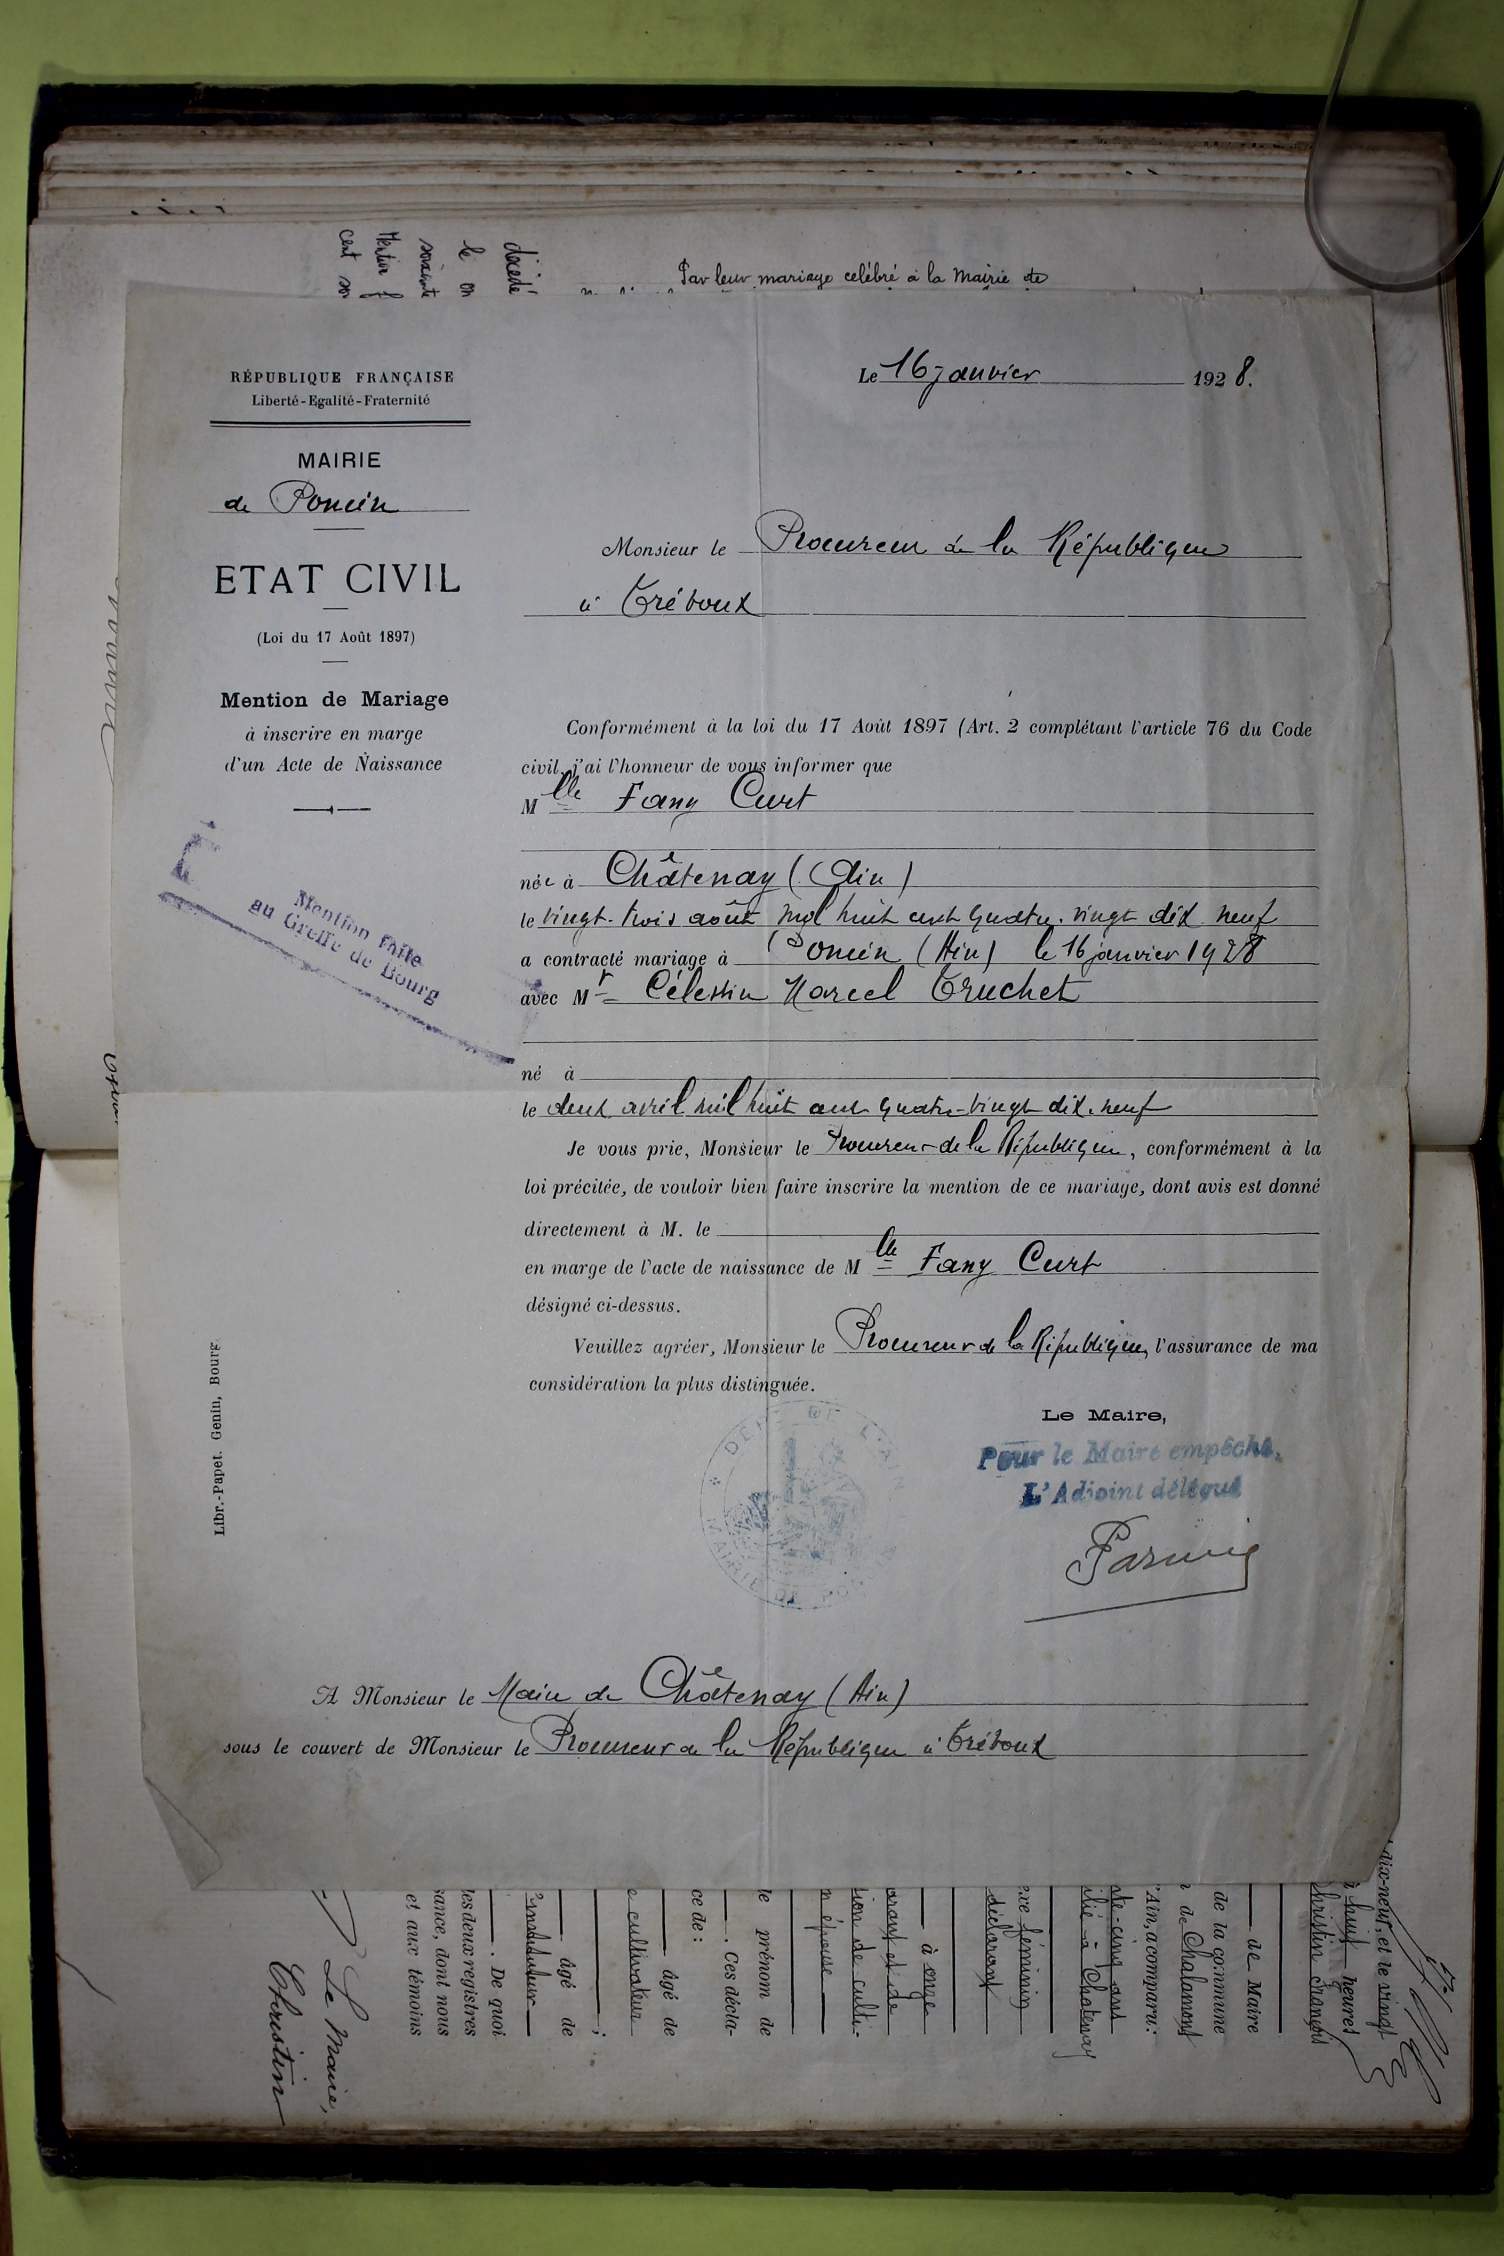 décédé
le on
soixante
Mention f
cent so
Par leur mariage celébré à la Mairie de
RÉPUBLIQUE FRANÇAISE
Liberté-Egalité-Fraternité
MAIRIE
de Poncin
ETAT CIVIL
(Loi du 17 Août 1897)
Mention de Mariage
à inscrire en marge
d'un Acte de Naissance
Mention faite
au Greffe de Bourg
Libr.-Papet. Genin, Bourg
Le 16 janvier 1928.
Monsieur le Procureur de la République
à Trévoux
Conformément à la loi du 17 Août 1897 (Art. 2 complétant l'article 76 du Code
civil, j'ai l'honneur de vous informer que
Mlle Fany Curt
née à Châtenay (Ain)
le vingt-trois août mil huit cent quatre-vingt dix neuf
a contracté mariage à Poncin (Ain) le 16 janvier 1928
avec Mr Célestin Marcel Truchet
né à
le deux avril mil huit cent quatre-vingt dix-neuf
Je vous prie, Monsieur le Procureur de la République, conformément à la
loi précitée, de vouloir bien faire inscrire la mention de ce mariage, dont avis est donné
directement à M. le
en marge de l'acte de naissance de Mlle Fany Curt
désigné ci-dessus.
Veuillez agréer, Monsieur le Procureur de la République, l'assurance de ma
considération la plus distinguée.
Le Maire,
Pour le Maire empêché,
L'Adjoint délégué
DÉPT DE L'AIN
MAIRIE DE PONCIN
A Monsieur le Maire de Châtenay (Ain)
sous le couvert de Monsieur le Procureur de la République à Trévoux
dix-neuf, et le vingt
huit heures
Christin François
de Maire
de la commune
de Chalamont
'Ain, a comparu:
nte-cinq ans
ilié à Chatenay
exe féminin
déclarant
à onze
arant et de
tion de culti-
n épouse
le prénom de
. Ces décla-
ce de :
âgé de
e cultivateur
;
âgé de
instituteur
. De quoi
les deux registres
sance, dont nous
et aux témoins
Le Maire,
Christin